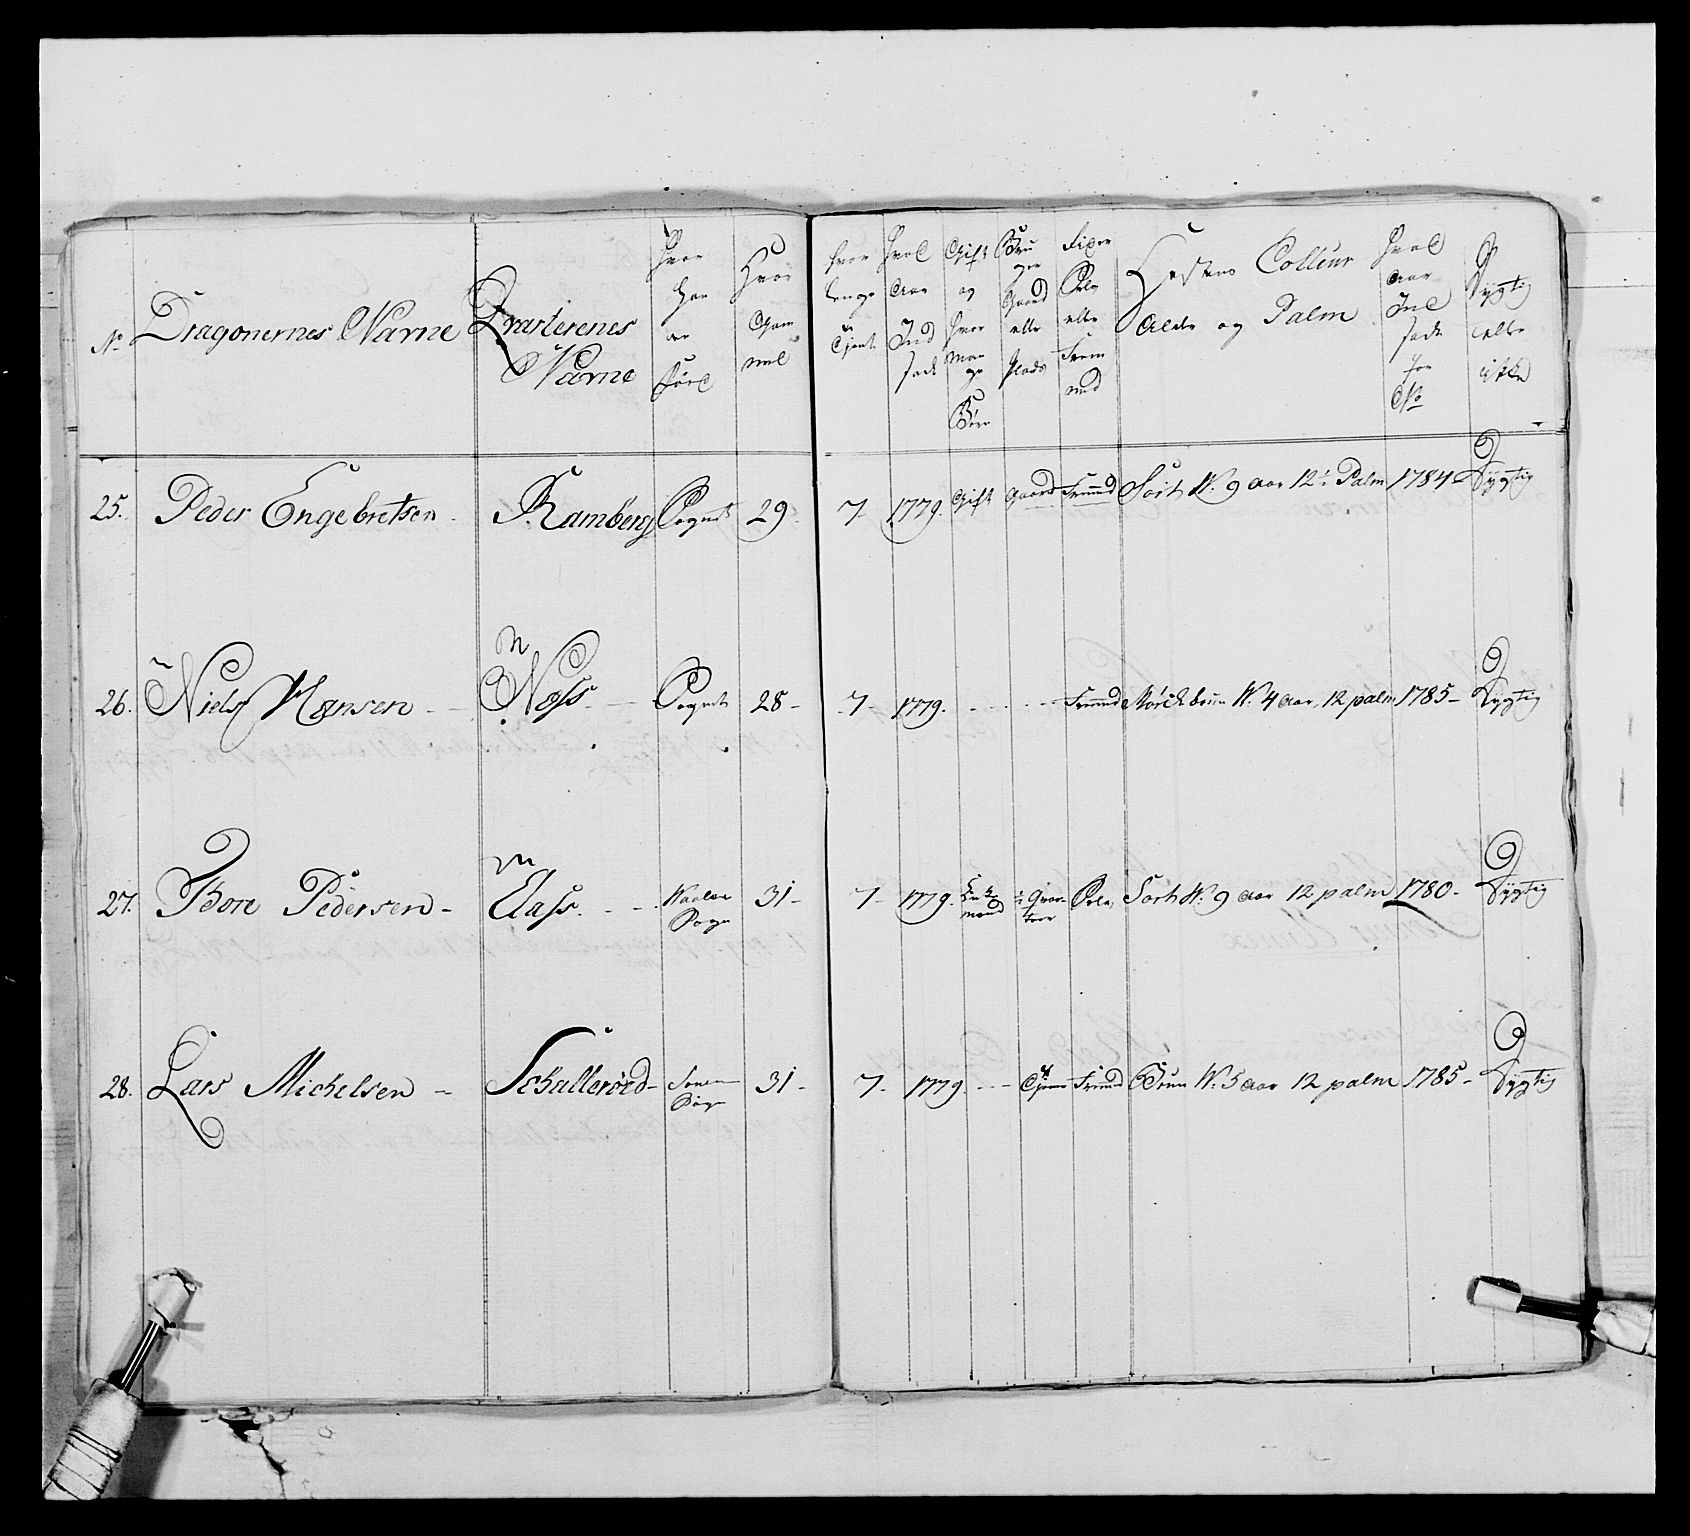 No
Dragonernes Navne
Qvarterenes
Navne
hvor
han
er
född
Hvor
Gam
mel
hvor
lenge
tjent
hvad
Aar
Ind
sadt
Gift
og
hvor
man
ge
Börn
Bru
ger
Gaard
eller
Plads
eller
Frem
med
Hestens Colleur
Alder og Palm
hvad
Aar
Ind
sadt
for
No
Dygtig
eller
ikke
25. Peder Engebretsen Ramberg Sognet 29 7 1779. Gift Gaard Fremmed Sort W: 9 aar 12 1/2 Palm 1784 Dygtig
26. Niels Hansen - N Næss - Sognet 28 - 7 - 1779. - - - - Fremmed Mörck bruun W: 4 aar, 12 palm 1785 - Dygtig
27. Tore Pedersen - Aass. - - Waaler
Sogn 31 - 7 - 1779. Encke
mand i Qvar
teer Sort W: 9 aar 12 palm 1780 - Dygtig
28. Lars Michelsen - Schalleröed -
Sogn 31 - 7 - 1779. - - - Fremmed Bruun W: 5 aar 12 palm 1785 - Dygtig